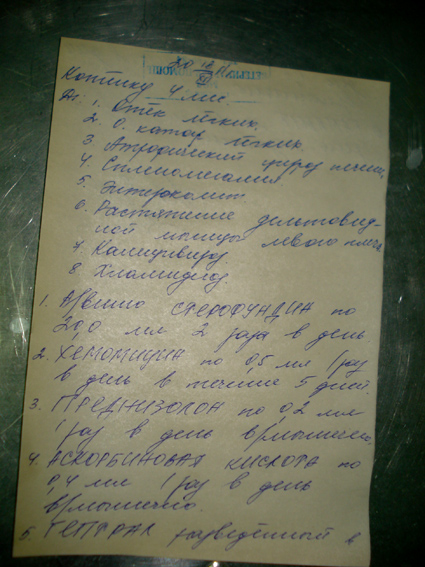 Котику 4 мес.
Дз. 1. Отёк лёгких.
2. О. катар лёгких
3. Атрофический цирроз печени,
4. Спленомегалия.
5. Энтероколит
6. Растяжение дельтовид-
ной мышцы левого плеча
7. Калицивироз
8. Хламидиоз.
1. В/венно СТЕРОФУНДИН по
20,0 мл 2 раза в день.
2. ХЕМОМИЦИН по 0,5 мл 1 раз
в день в течение 5 дней.
3. ПРЕДНИЗОЛОН по 0,2 мл
1 раз в день в/мышечно,
4. АСКОРБИНОВАЯ КИСЛОТА по
0,4 мл 1 раз в день
в/мышечно.
5. ГЕПТРАЛ разведённый в